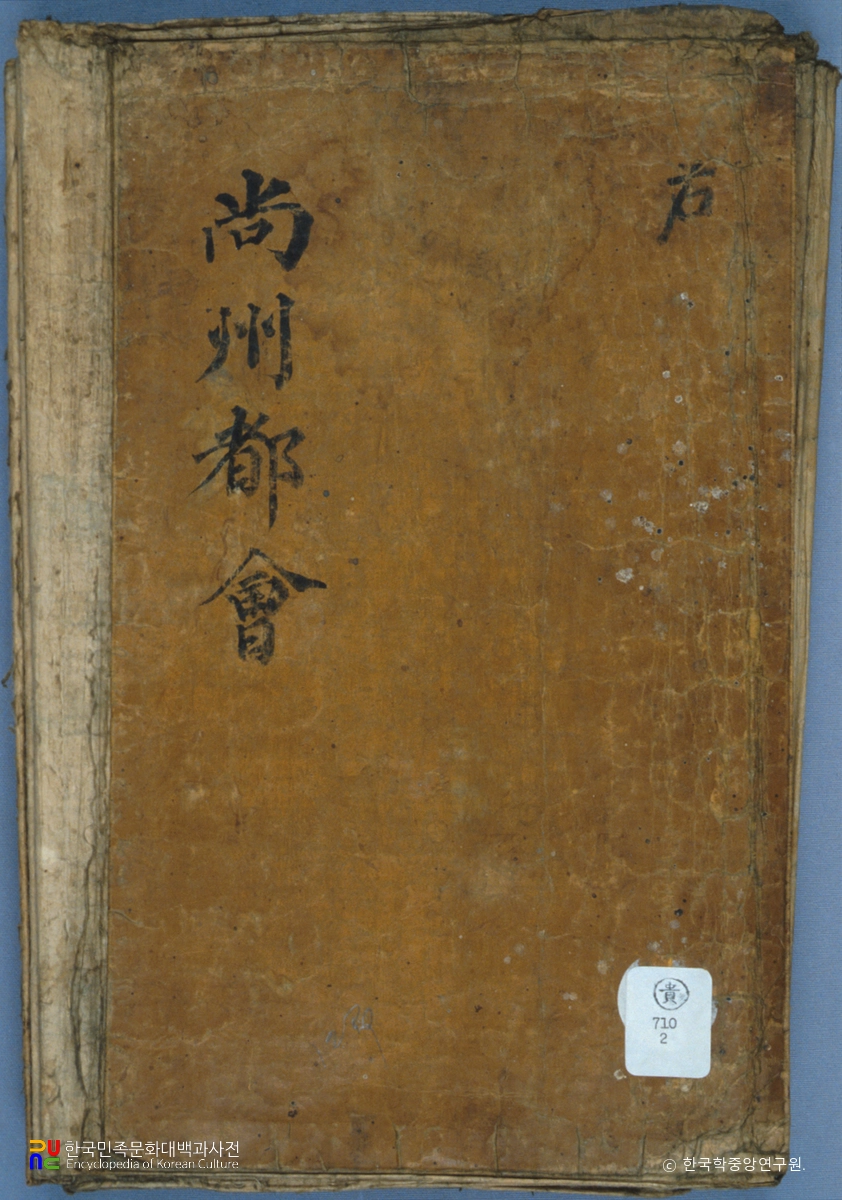 尚州都會
貴
710
2
한국민족문화대백과사전
Encyclopedia of Korean Culture
© 한국학중앙연구원.